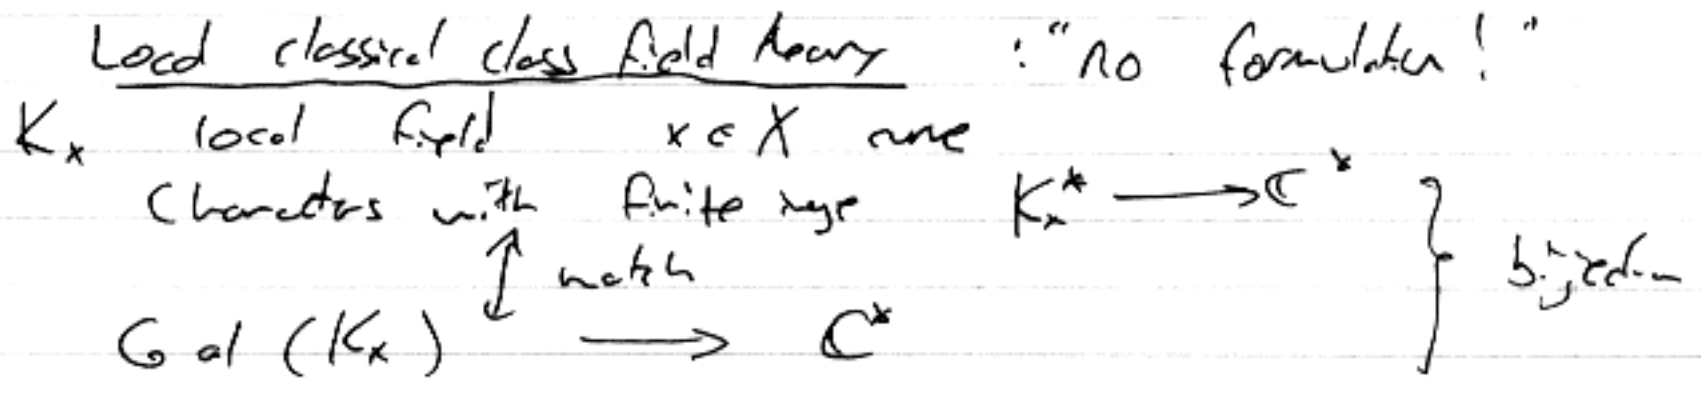 Local classical class field theory : "no formulation!"
K_x local field x ∈ X curve
Characters with finite image K_x^* ⟶ ℂ^* } bijection
↕ match
Gal (K_x) ⟶ ℂ^*